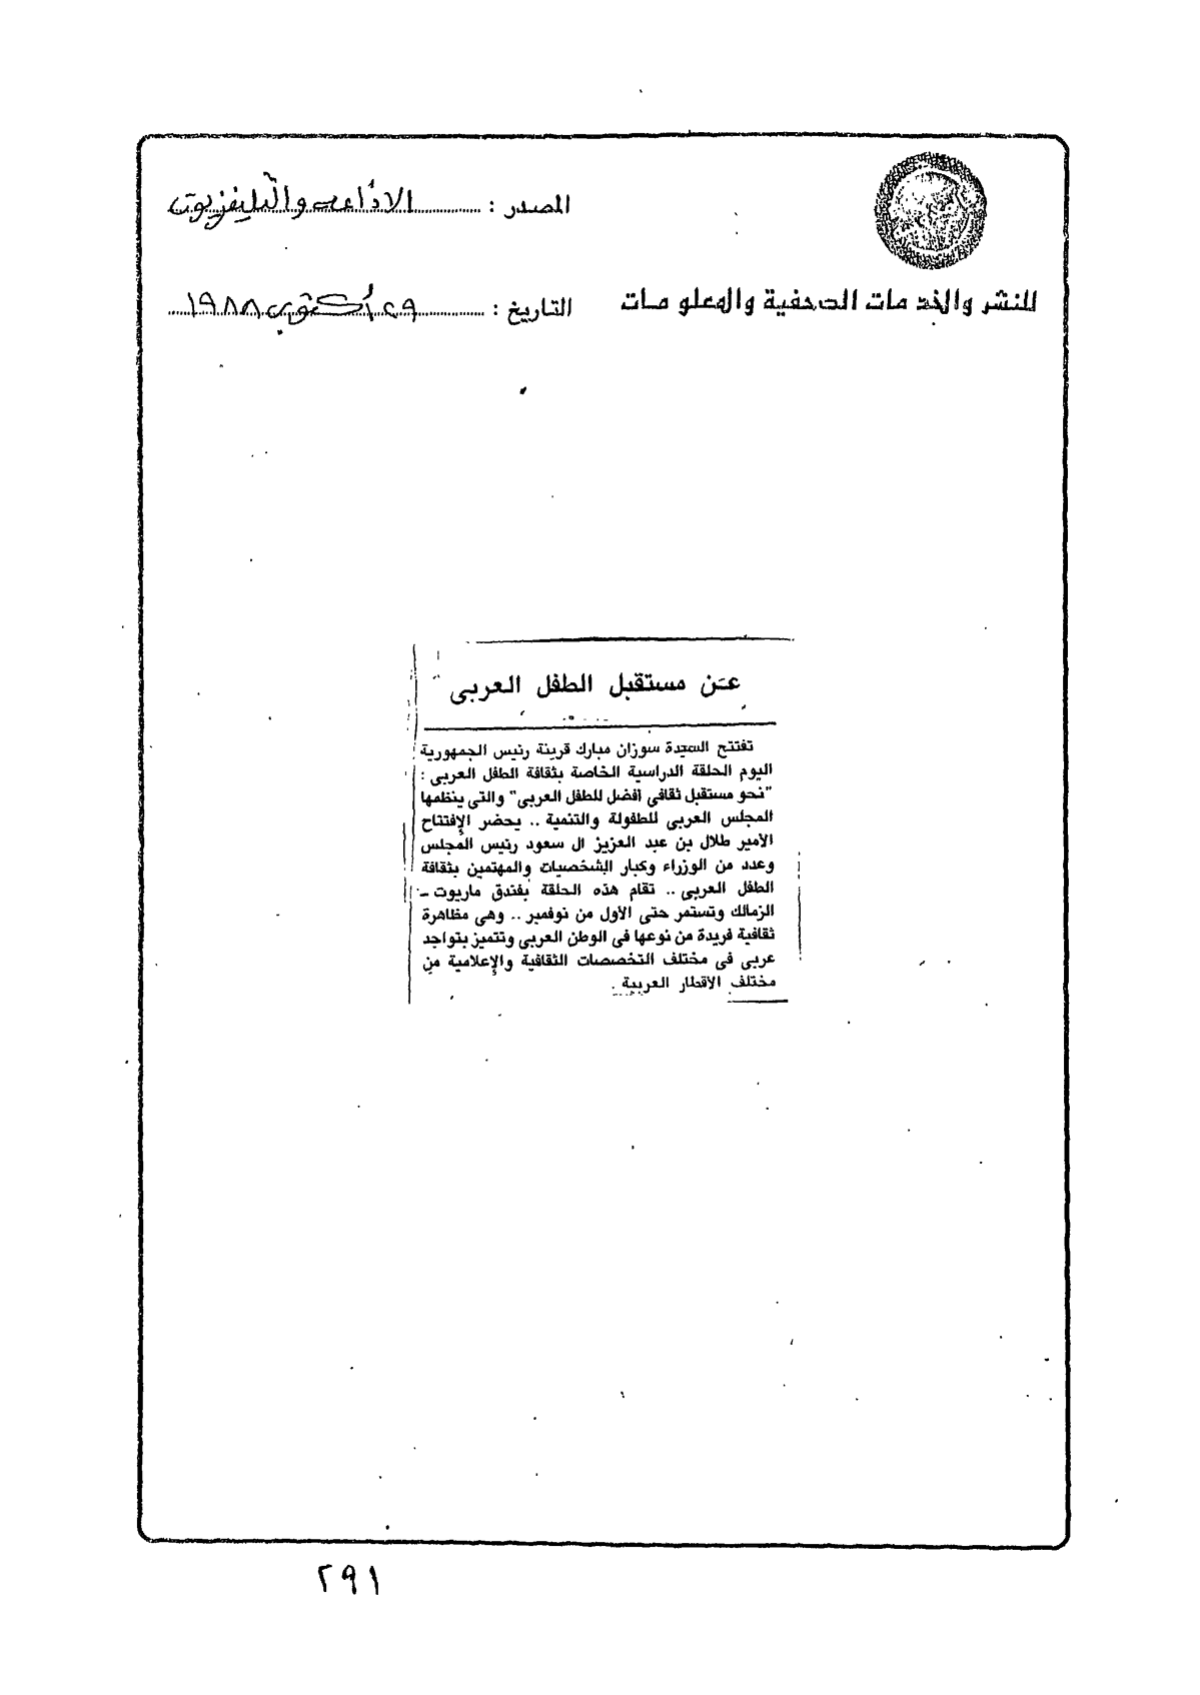 المصدر : الاذاعه والتليفزيون
للنشر والخدمات الصحفية والمعلومات
التاريخ : ٢٩ أكتوبر ١٩٨٨
عن مستقبل الطفل العربى
تفتتح السيدة سوزان مبارك قرينة رئيس الجمهورية
اليوم الحلقة الدراسية الخاصة بثقافة الطفل العربى :
"نحو مستقبل ثقافى أفضل للطفل العربى" والتى ينظمها
المجلس العربى للطفولة والتنمية .. يحضر الإفتتاح
الأمير طلال بن عبد العزيز ال سعود رئيس المجلس
وعدد من الوزراء وكبار الشخصيات والمهتمين بثقافة
الطفل العربى .. تقام هذه الحلقة بفندق ماريوت -
الزمالك وتستمر حتى الأول من نوفمبر .. وهى مظاهرة
ثقافية فريدة من نوعها فى الوطن العربى وتتميز بتواجد
عربى فى مختلف التخصصات الثقافية والإعلامية من
مختلف الاقطار العربية .
٢٩١